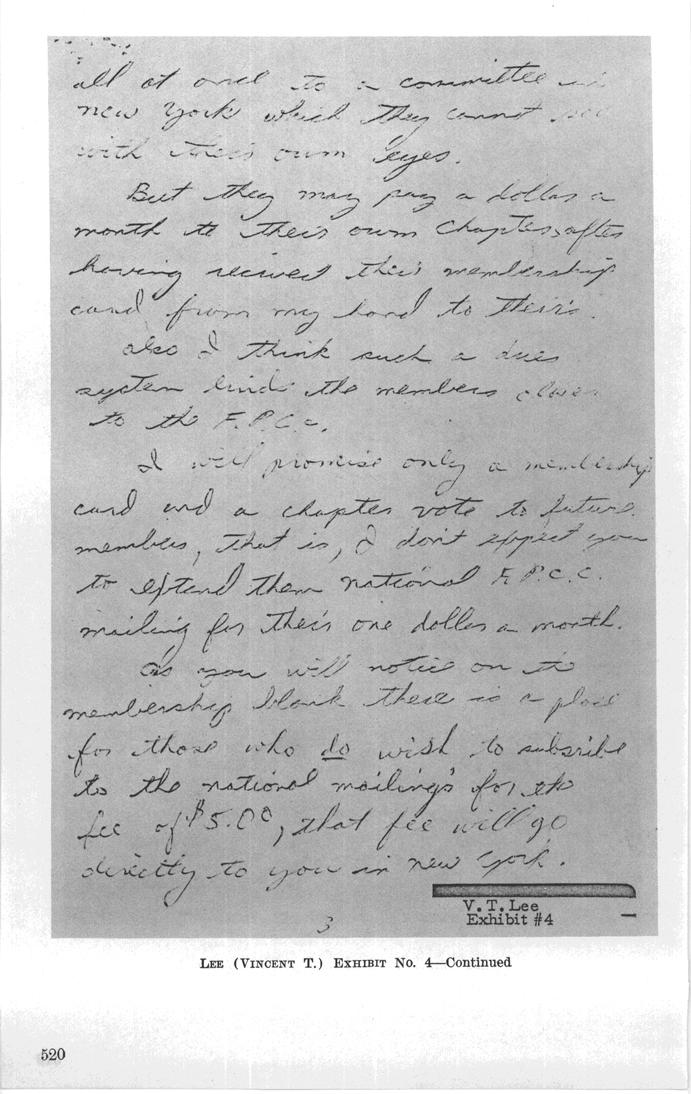 all at once to a committee in
new York which they cannot see
with their own eyes.
But they may pay a dollar a
month to their own Chapter, after
having recived their membership
card from my hand to their's.
also I think such a dues
system binds the members closer
to the F.P.C.C.
I will promise only a membership
card and a chapter vote to future
members, that is, I don't expect you
to extend them national F.P.C.C.
mailing for their one dollar a month.
As you will notice on the
membership blank there is a place
for those who do wish to subsribe
to the national mailing's for the
fee of $5.00, that fee will go
directly to you in new York.
3
V. T. Lee
Exhibit #4
LEE (VINCENT T.) EXHIBIT NO. 4—Continued
520